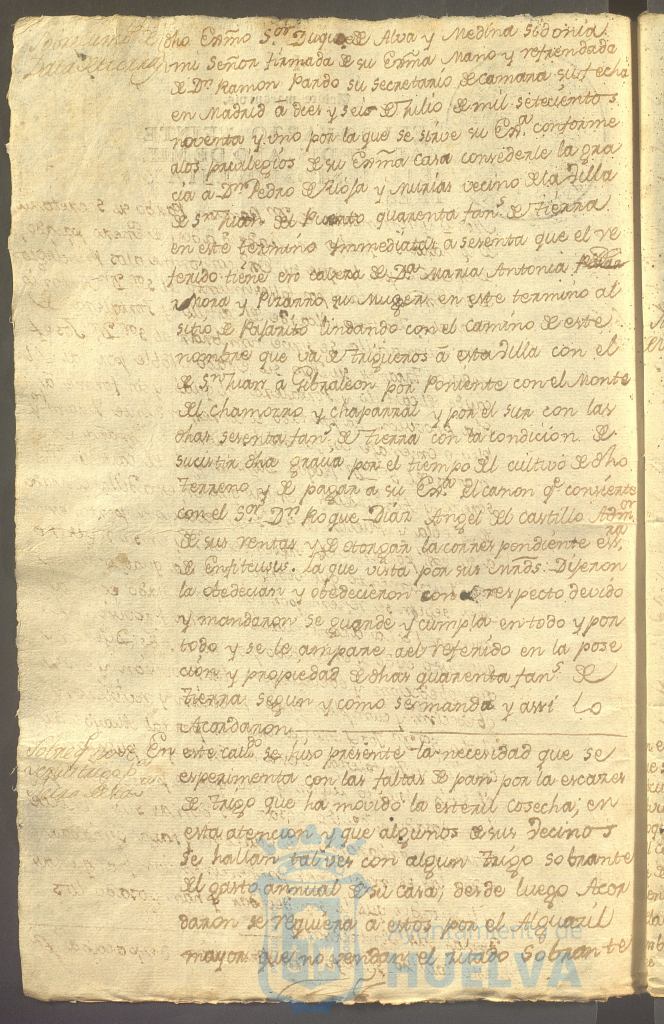 dho Exmo Sor Duque de Alva y Medina Sidonia
mi Señor firmada de su Exma Mano y refrendada
de Dn Ramon Pardo su secretario de camara su fecha
en Madrid à dies y seis de Julio de mil setecientos
noventa y uno por la que se sirve su Exa conforme
a los privilegios de su Exma casa consederle la gra
cia â Dn Pedro de y vecino de la Villa
de Sn Juan del Puerto quarenta fans de tierra
en este termino ymmediatas â sesenta que el re
ferido tiene en cavesa de Da Maria Antonia
Mora y su Muger en este termino al
sitio de lindando con el camino de este
nombre que va de trigueros â esta Villa con el
de Sn Juan a Gibraleon por Poniente con el Monte
del chamorro y chaparral y por el sur con las
dhas sesenta fans de tierra con la condicion de
dha gracia por el tiempo del cultivo de dho
terreno y de pagar â su Exa el canon qe consiente
con el Sor Dn Roque Dian Angel del castillo Admor
de sus rentas y de otorgar la correspondiente
de Enfiteusus. la que vista por sus mrds. Dijeron
la obedecian y obedecieron con el respecto devido
y mandaron se guarde y cumpla en todo y por
todo y se le ampare ael referido en la pose
cion y propiedad de dhas quarenta fans de
tierra segun y como se manda y assi lo
Acordaron
Sobre qe no se
En este cavdo se hiso presente la necesidad que se
esperimenta con las faltas de pan por la escases
de trigo que ha movido la esteril cosecha; en
esta atencion y que algunos de sus Vecinos
se hallan tal ves con algun trigo sobrante
del gasto annual de su casa; desde luego Acor
daron se requiera a estos por el Alguazil
mayor que no vendan el citado sobrante
Ayuntamiento de
HUELVA